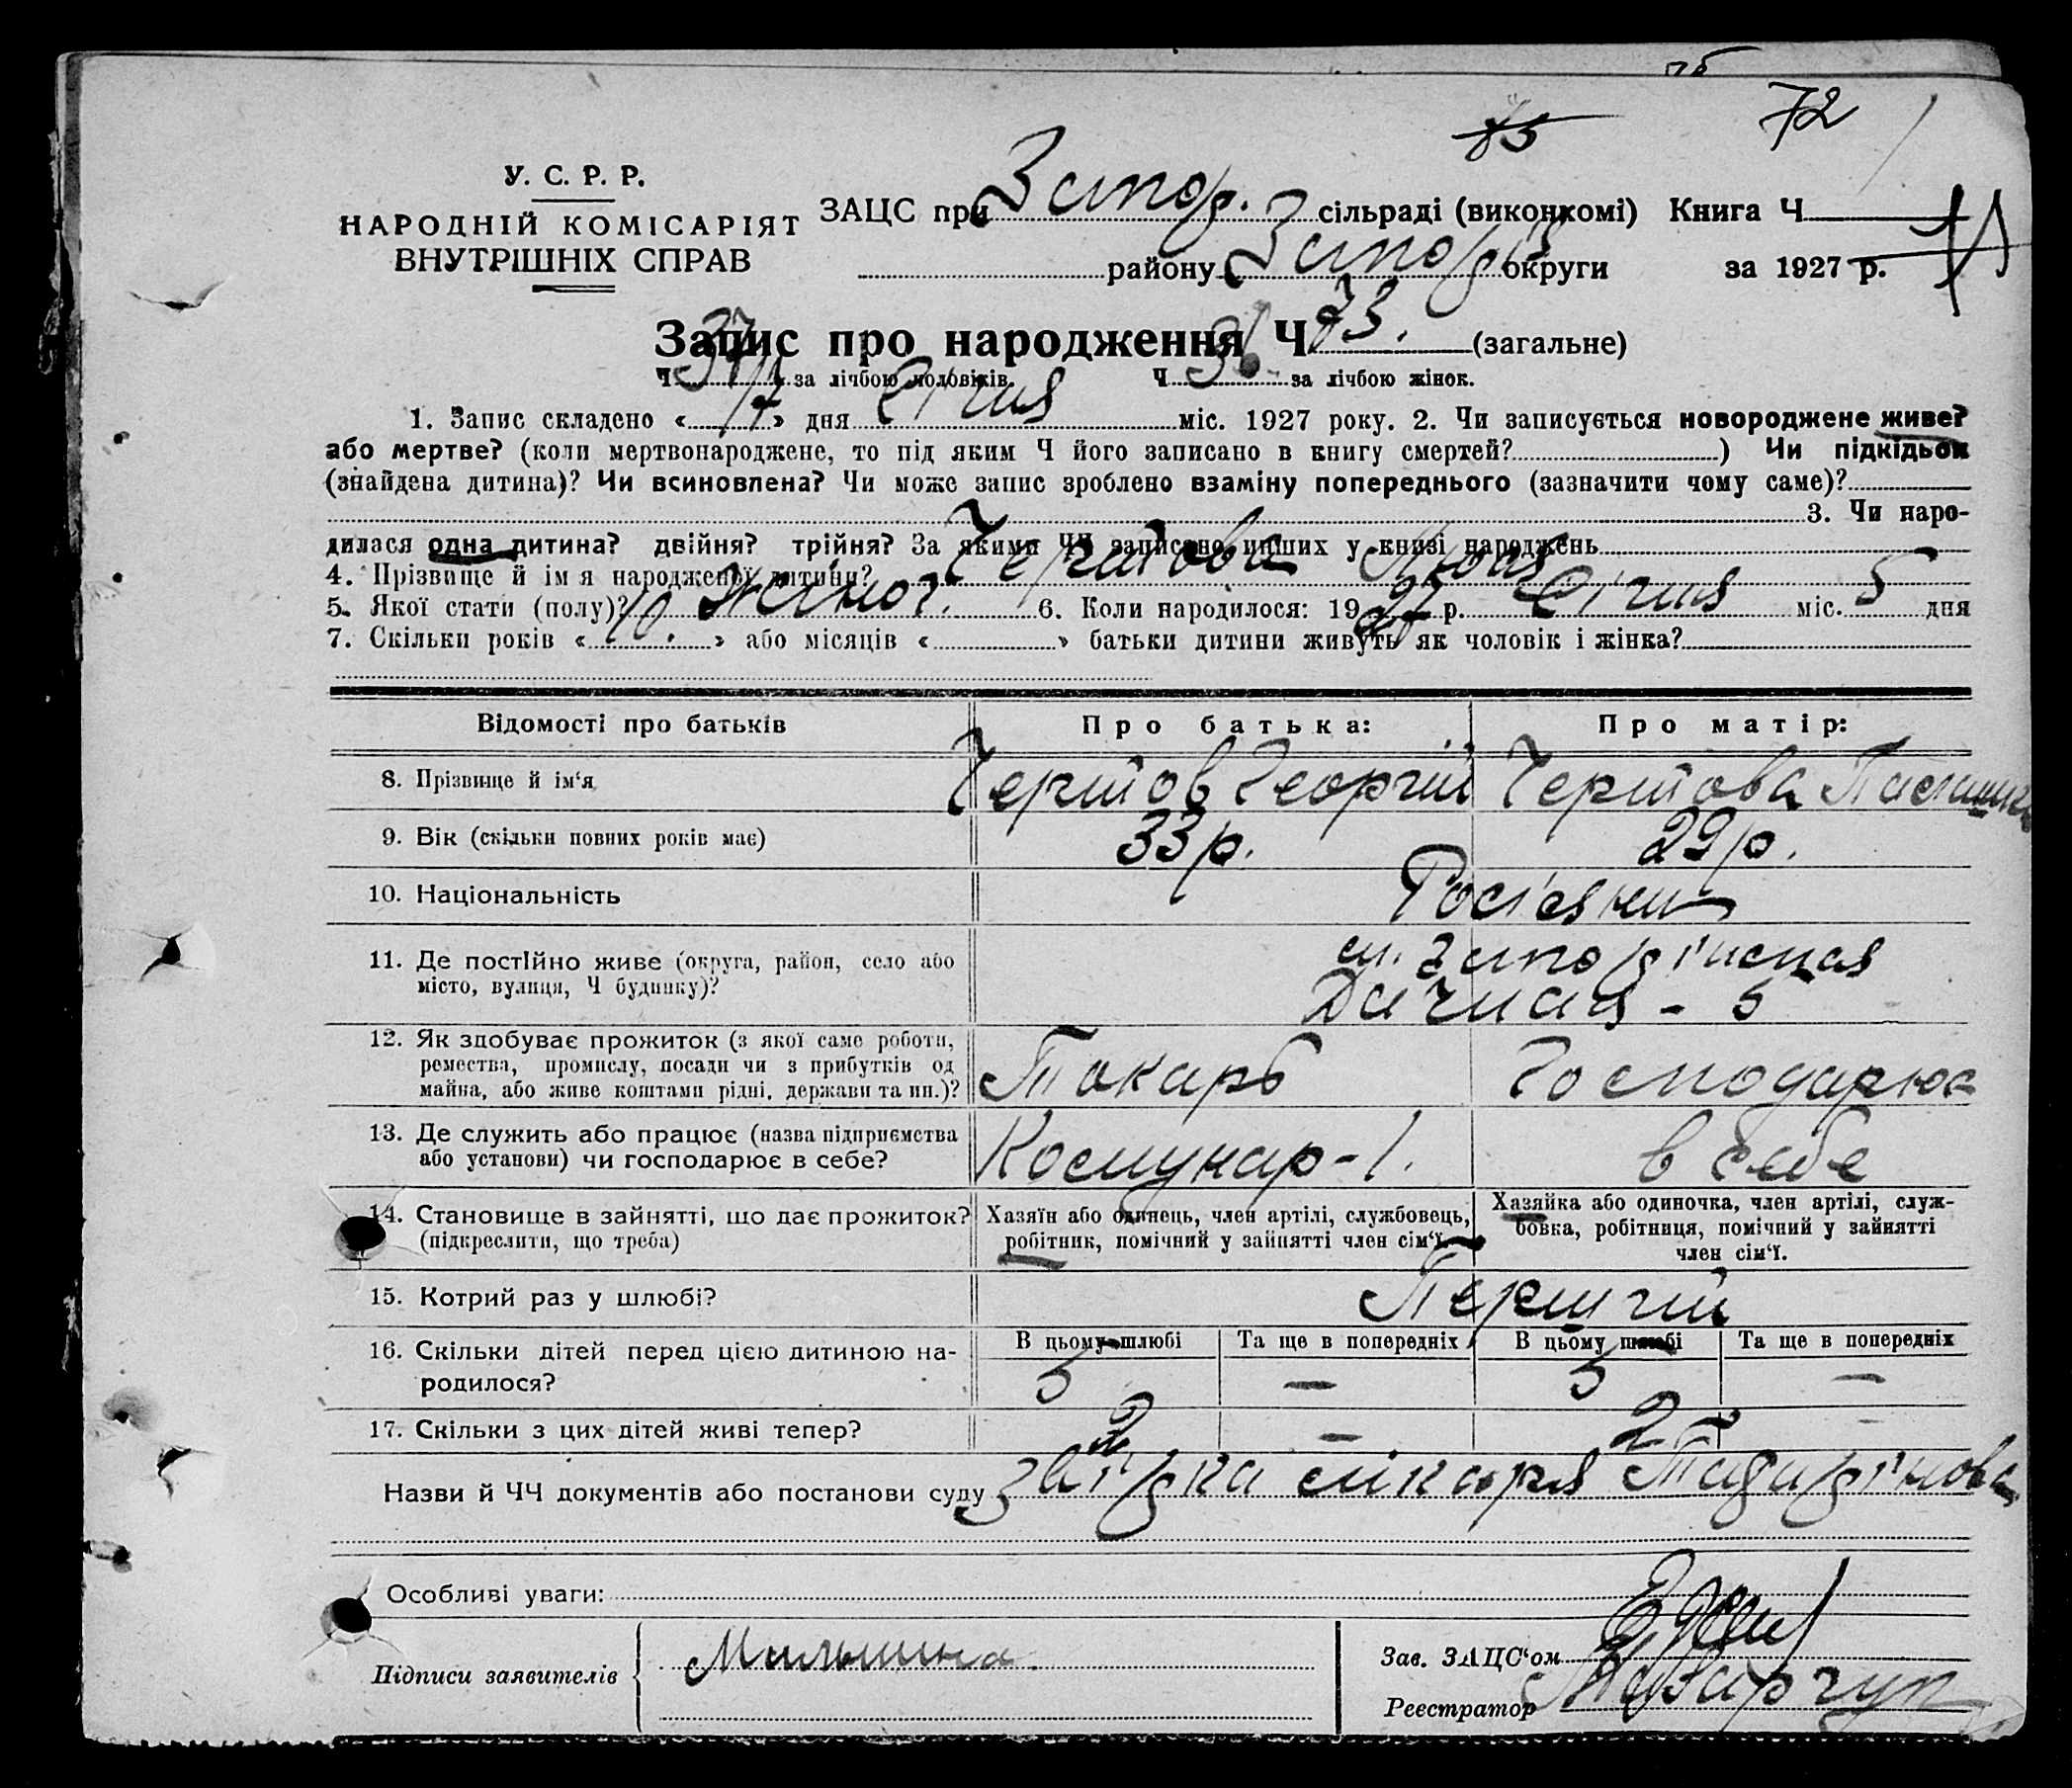 72
У. С. Р. Р.
НАРОДНІЙ КОМІСАРІЯТ
ВНУТРІШНІХ СПРАВ
ЗАЦС при Запор. сільраді (виконкомі) Книга Ч
району Запор округи за 1927 р.
Запис про народження Ч 73. (загальне)
Ч 37 за лічбою чоловіків. Ч 36 за лічбою жінок.
1. Запис складено «17» дня Січня міс. 1927 року. 2. Чи записується новороджене живе?
або мертве? (коли мертвонароджене, то під яким Ч його записано в книгу смертей? ) Чи підкідьок
(знайдена дитина)? Чи всиновлена? Чи може запис зроблено взаміну попереднього (зазначити чому саме)?
3. Чи наро-
дилася одна дитина? двійня? трійня? За якими ЧЧ записано инших у книзі народжень
4. Прізвище й ім я народженої дитини? Чертова
5. Якої стати (полу)? Жіноч. 6. Коли народилося: 1927 р. Січня міс. 5 дня
7. Скільки років «10.» або місяців « » батьки дитини живуть як чоловік і жінка?
Відомості про батьків Про батька: Про матір:
8. Прізвище й ім‘я Чертов Георгій Чертова
9. Вік (скільки повних років має) 33 р. 29 р.
10. Національність Росіяни
11. Де постійно живе (округа, район, село або
місто, вулиця, Ч будинку)?
Дачная - 5
12. Як здобуває прожиток (з якої саме роботи,
ремества, промислу, посади чи з прибутків од
майна, або живе коштами рідні, держави та ин.)? Токарь Господарює
13. Де служить або працює (назва підприємства
або установи) чи господарює в себе? Комунар-1. в себе
14. Становище в зайнятті, що дає прожиток?
(підкреслити, що треба)
Хазяїн або одинець, член артілі, службовець,
робітник, помічний у зайнятті член сім‘ї.
Хазяйка або одиночка, член артілі, служ-
бовка, робітниця, помічний у зайнятті
член сім‘ї.
15. Котрий раз у шлюбі? Перший
16. Скільки дітей перед цією дитиною на-
родилося?
В цьому шлюбі Та ще в попередніх В цьому шлюбі Та ще в попередніх
5 — 5 —
17. Скільки з цих дітей живі тепер? 2 — 2 —
Назви й ЧЧ документів або постанови суду лікаря
Особливі уваги:
Підписи заявителів Мильшина
Зав. ЗАЦС‘ом
Реєстратор